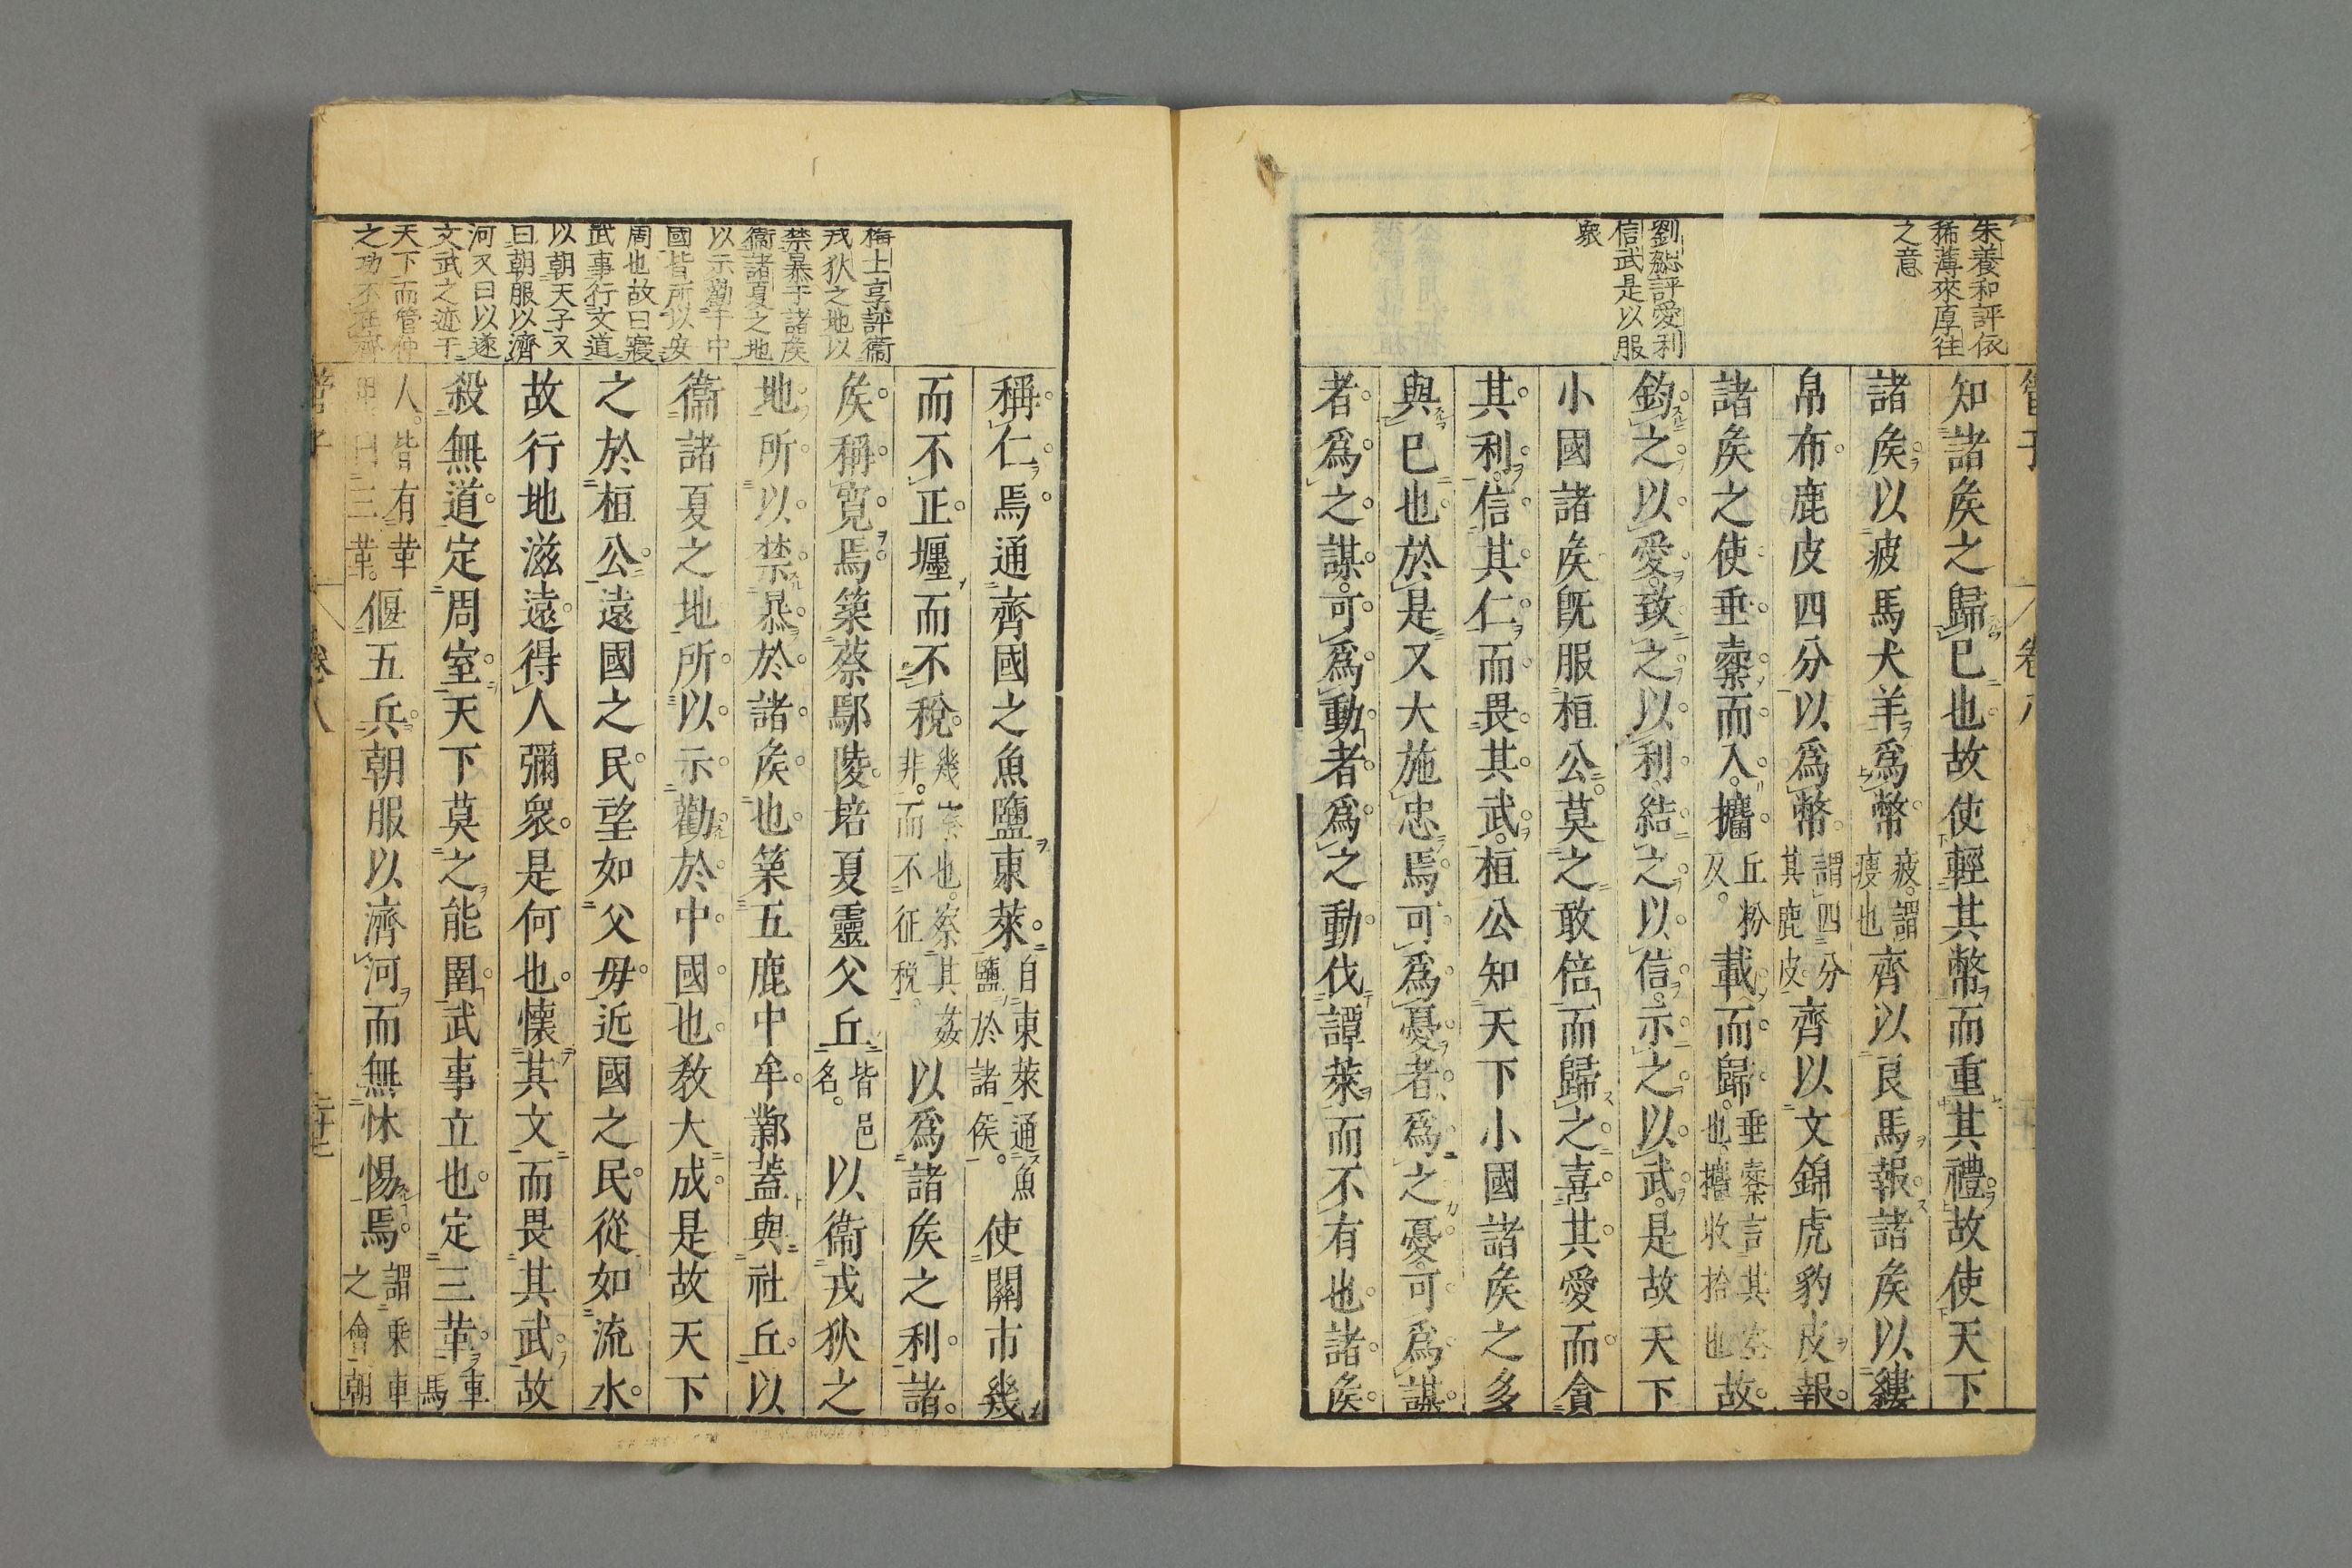 朱養和評依
稀薄來厚往
之意
劉勰評愛利
信武是以服
衆
知諸矦之歸已也故使輕其幣而重其禮故使天下
諸矦以疲馬犬羊爲幣疲謂瘦也齊以良馬報諸矦以縷
帛布鹿皮四分以爲幣謂四分其鹿皮齊以文錦虎豹皮報
諸矦之使垂櫜而入攟丘粉反載而歸垂櫜言其空也攟收拾也故
鈞之以愛致之以利結之以信示之以武是故天下
小國諸矦旣服桓公莫之敢倍而歸之喜其愛而貪
其利信其仁而畏其武桓公知天下小國諸矦之多
與已也於是又大施忠焉可爲憂者爲之憂可爲謀
者爲之謀可爲動者爲之動伐譚萊而不有也諸矦
梅士享評衞
戎狄之地以
禁暴于諸矦
衞諸夏之地
以示勸于中
國皆所以安
周也故曰寢
武事行文道
以朝天子又
曰朝服以濟
河又曰以遂
文武之迹于
天下而管仲
之功不在齊
稱仁焉通齊國之魚鹽東萊自東萊通魚鹽於諸侯使關市幾
而不正壥而不稅幾察也察其姦非而不征稅以爲諸矦之利諸
矦稱寬焉築蔡鄢陵培夏靈父丘皆邑名以衞戎狄之
地所以禁暴於諸矦也築五鹿中牟鄴蓋與社丘以
衞諸夏之地所以示勸於中國也敎大成是故天下
之於桓公遠國之民望如父母近國之民從如流水
故行地滋遠得人彌衆是何也懷其文而畏其武故
殺無道定周室天下莫之能圉武事立也定三革車馬
人皆有革甲曰三革偃五兵朝服以濟河而無怵惕焉謂乘車之會朝
管子
卷八